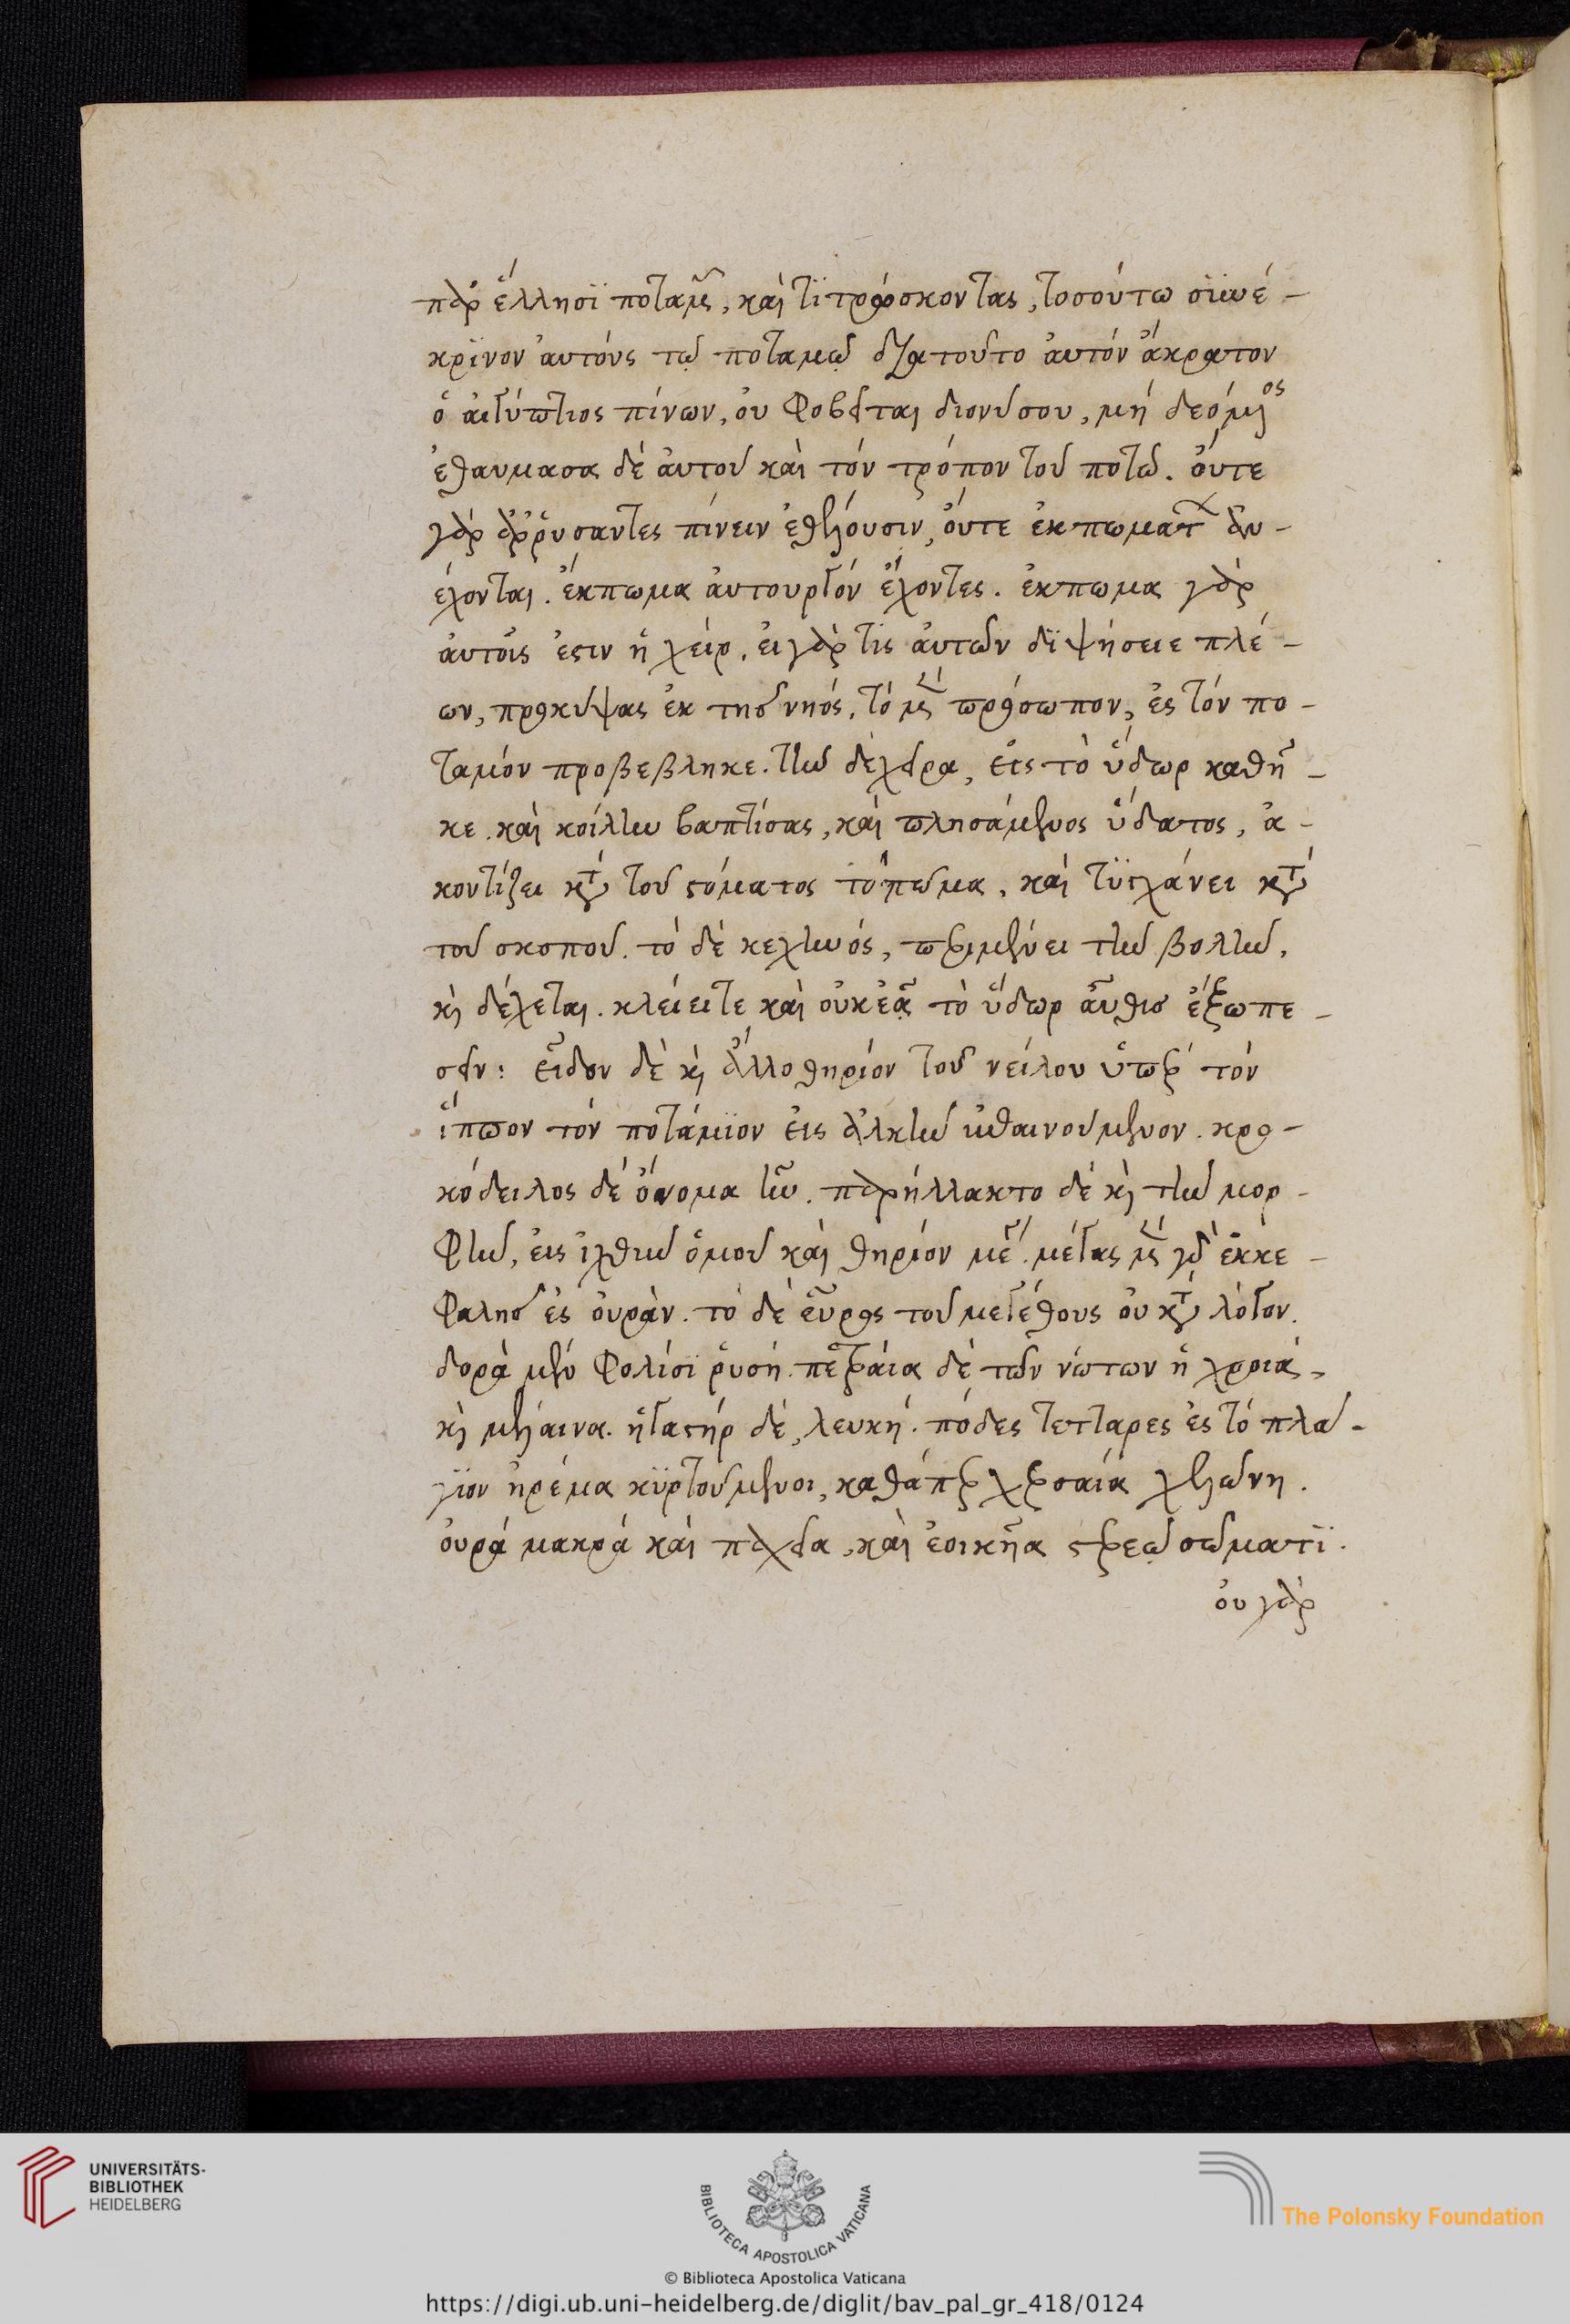 παρ' ἕλλησϊ ποταμοῦς, καὶ τϊτρώσκοντας, τοσούτω συνέ-
κρϊνον ἀυτόυς τῶ ποταμῶ διατοῦτο ἀυτόν ἄκρατον
ὁ ἀιγύπτιος πίνων, ὀυ φοβεῖται διονύσου, μὴ δεόμενος
ἐθαυμασα δὲ ἀυτοῦ καὶ τὸν τρόπον τοῦ ποτοῦ. ὄυτε
γὰρ ἀρρύσαντες πίνειν ἐθέλουσιν, ὄυτε ἐκπωμάτων ἀν-
έχονται. ἔκπωμα ἀυτουργὸν ἔχοντες. ἐκπωμα γὰρ
ἀυτοῖς ἐστιν ἡ χεὶρ. ἐι γὰρ τϊς ἀυτῶν δϊψήσειε πλέ-
ων, προκύψας ἐκ τῆς νηός, τὸ μὲν πρόσωπον, ἐς τὸν πο-
ταμόν προβεβληκε. τὴν δὲ χεῖρα, ἐις τὸ ὕδωρ καθῆ-
κε. καὶ κοίλην βαπτίσας, καὶ πλησάμενος ὕδατος, ἀ-
κοντίζει κατὰ τοῦ στόματος τὸ πῶμα, καὶ τϋγχάνει κατὰ
τοῦ σκοποῦ. τὸ δὲ κεχηνός, περιμένει τὴν βολὴν,
καὶ δέχεται. κλείειτε καὶ ὀυκ ἐᾷ τὸ ὕδωρ ἄυθις ἔξω πε-
σεῖν: εἶδον δὲ καὶ ἄλλο θηρίον τοῦ νείλου ὑπὲρ τὸν
ἵππον τὸν ποτάμϊον ἐις ἀλκὴν ἐπαινούμενον. κρο-
κόδειλος δὲ ὄνομα ἦν. παρήλλακτο δὲ καὶ τὴν μορ-
φὴν, ἐις ἰχθὺν ὁμοῦ καὶ θηρίον μέγα. μέγας μὲν γὰρ ἐκ κε-
φαλῆς ἐς ὀυρὰν. τὸ δὲ εὖρος τοῦ μεγέθους ὀυ κατὰ λόγον.
δορὰ μὲν φολίσϊ ῥυσή. πετραία δὲ τῶν νώτων ἡ χροιὰ,
καὶ μέλαινα. ἡ γαστὴρ δὲ, λευκή. πόδες τετταρες ἐς τὸ πλά-
γϊον ἠρέμα κϋρτούμενοι, καθάπερ χερσαία χελώνη.
ὀυρὰ μακρὰ καὶ παχεῖα, καὶ ἐοικῆα στερεῷ σώματϊ.
ὀυ γὰρ
UNIVERSITÄTS-
BIBLIOTHEK
HEIDELBERG
BIBLIOTECA APOSTOLICA VATICANA
The Polonsky Foundation
© Biblioteca Apostolica Vaticana
https://digi.ub.uni-heidelberg.de/diglit/bav_pal_gr_418/0124